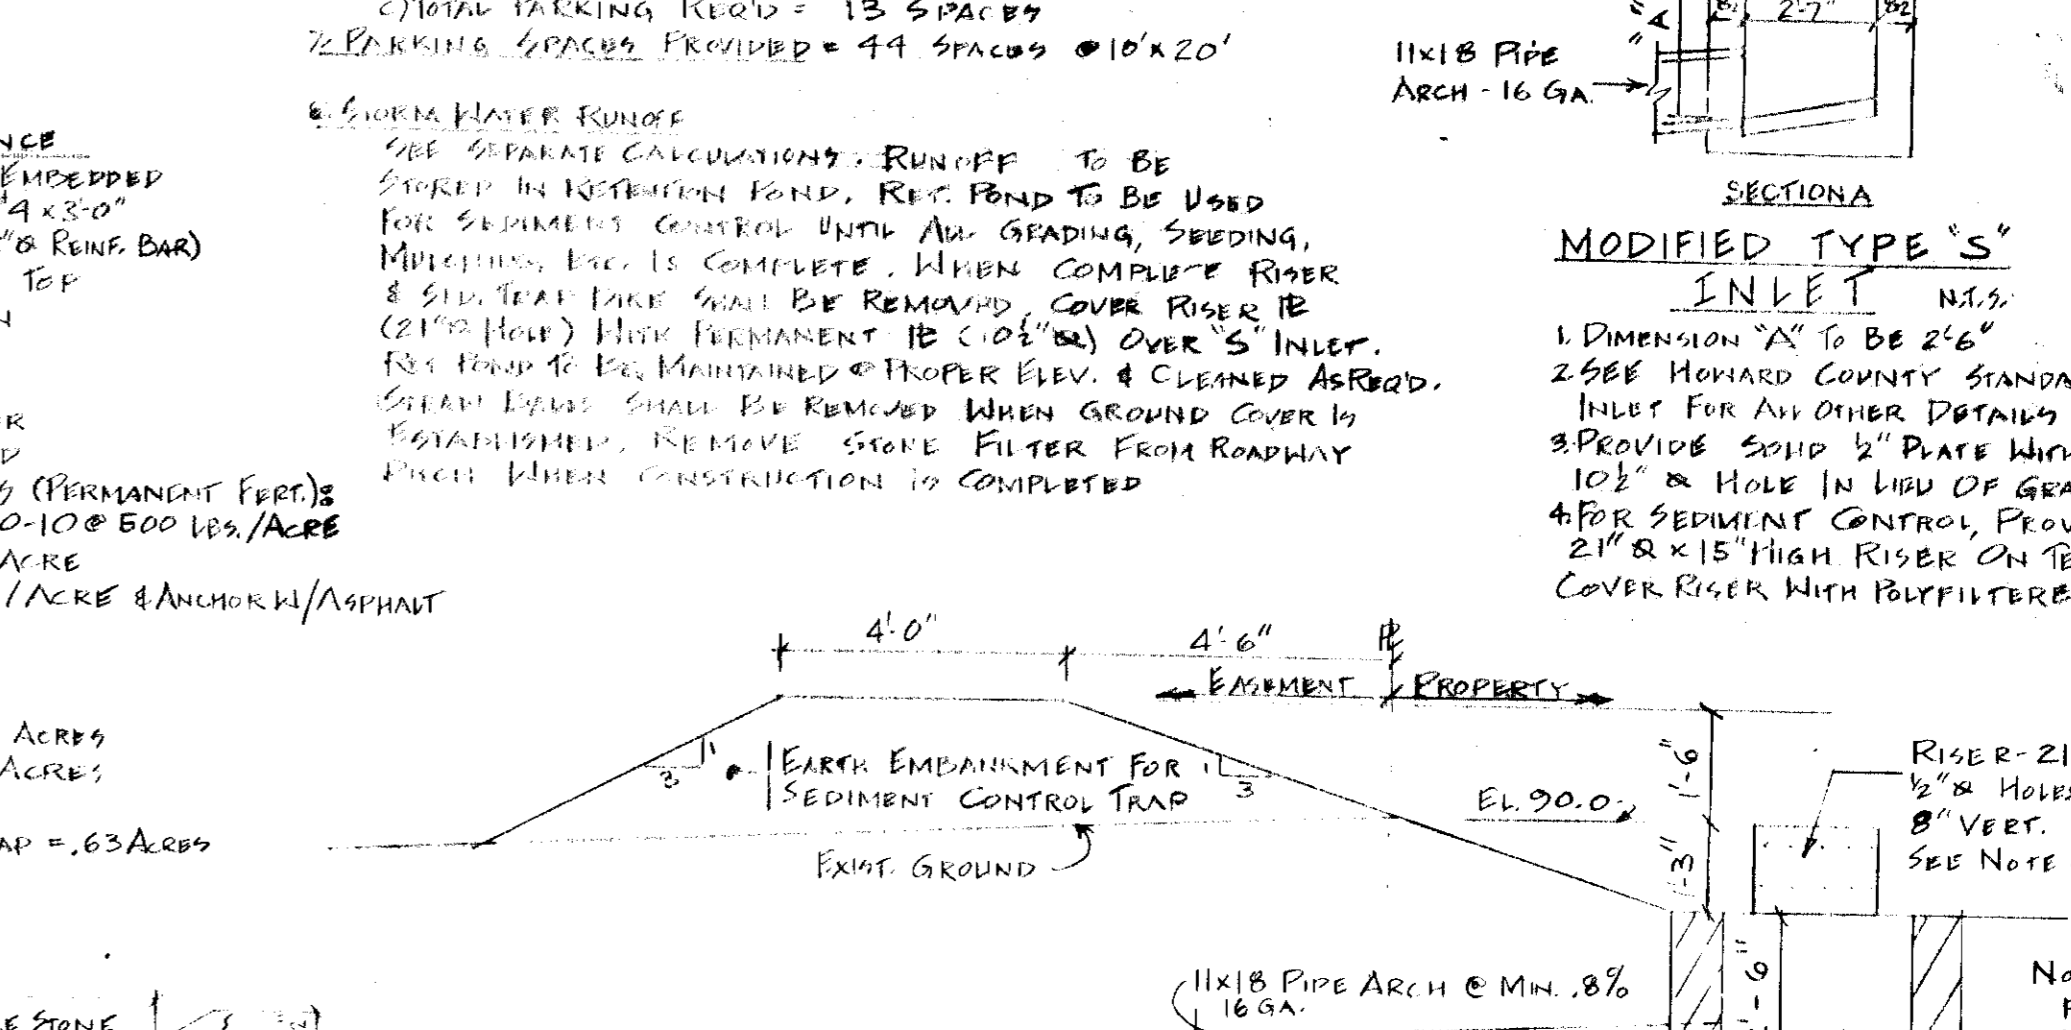 C) TOTAL PARKING REQ'D = 13 SPACES
7. PARKING SPACES PROVIDED = 44 SPACES @ 10' x 20'
8. STORM WATER RUNOFF
SEE SEPARATE CALCULATIONS. RUNOFF TO BE
STORED IN RETENTION POND. RET. POND TO BE USED
FOR SEDIMENT CONTROL UNTIL ALL GRADING, SEEDING,
MULCHING, ETC. IS COMPLETE. WHEN COMPLETE RISER
& SED. TRAP DIKE SHALL BE REMOVED. COVER RISER PL
(21"⌀ HOLE) WITH PERMANENT PL (10½"⌀) OVER "S" INLET.
RET POND TO BE MAINTAINED @ PROPER ELEV. & CLEANED AS REQ'D.
STRAW BALES SHALL BE REMOVED WHEN GROUND COVER IS
ESTABLISHED. REMOVE STONE FILTER FROM ROADWAY
DITCH WHEN CONSTRUCTION IS COMPLETED
NCE
EMBEDDED
4 x 3'-0"
"⌀ REINF. BAR)
TOP
N
R
D
S (PERMANENT FERT.):
0-10 @ 500 LBS./ACRE
ACRE
/ACRE & ANCHOR W/ASPHALT
ACRES
ACRES
AP = .63 ACRES
E STONE
"A"
8½
2'-7"
8½
11x18 PIPE
ARCH - 16 GA.
SECTION A
MODIFIED TYPE "S"
INLET N.T.S.
1. DIMENSION "A" TO BE 2'-6"
2. SEE HOWARD COUNTY STANDA
INLET FOR ALL OTHER DETAILS
3. PROVIDE SOLID ½" PLATE WITH
10½" ⌀ HOLE IN LIEU OF GRA
4. FOR SEDIMENT CONTROL, PROV
21" ⌀ x 15" HIGH RISER ON TE
COVER RISER WITH POLYFILTERE
4'-0"
4'-6"
PL
EASEMENT
PROPERTY
1
3
EARTH EMBANKMENT FOR
SEDIMENT CONTROL TRAP
1
3
EL. 90.0
EXIST. GROUND
1'-6"
1'-3"
RISER - 21
½"⌀ HOLES
8" VERT.
SEE NOTE
11x18 PIPE ARCH @ MIN. .8%
16 GA.
'-6"
NO